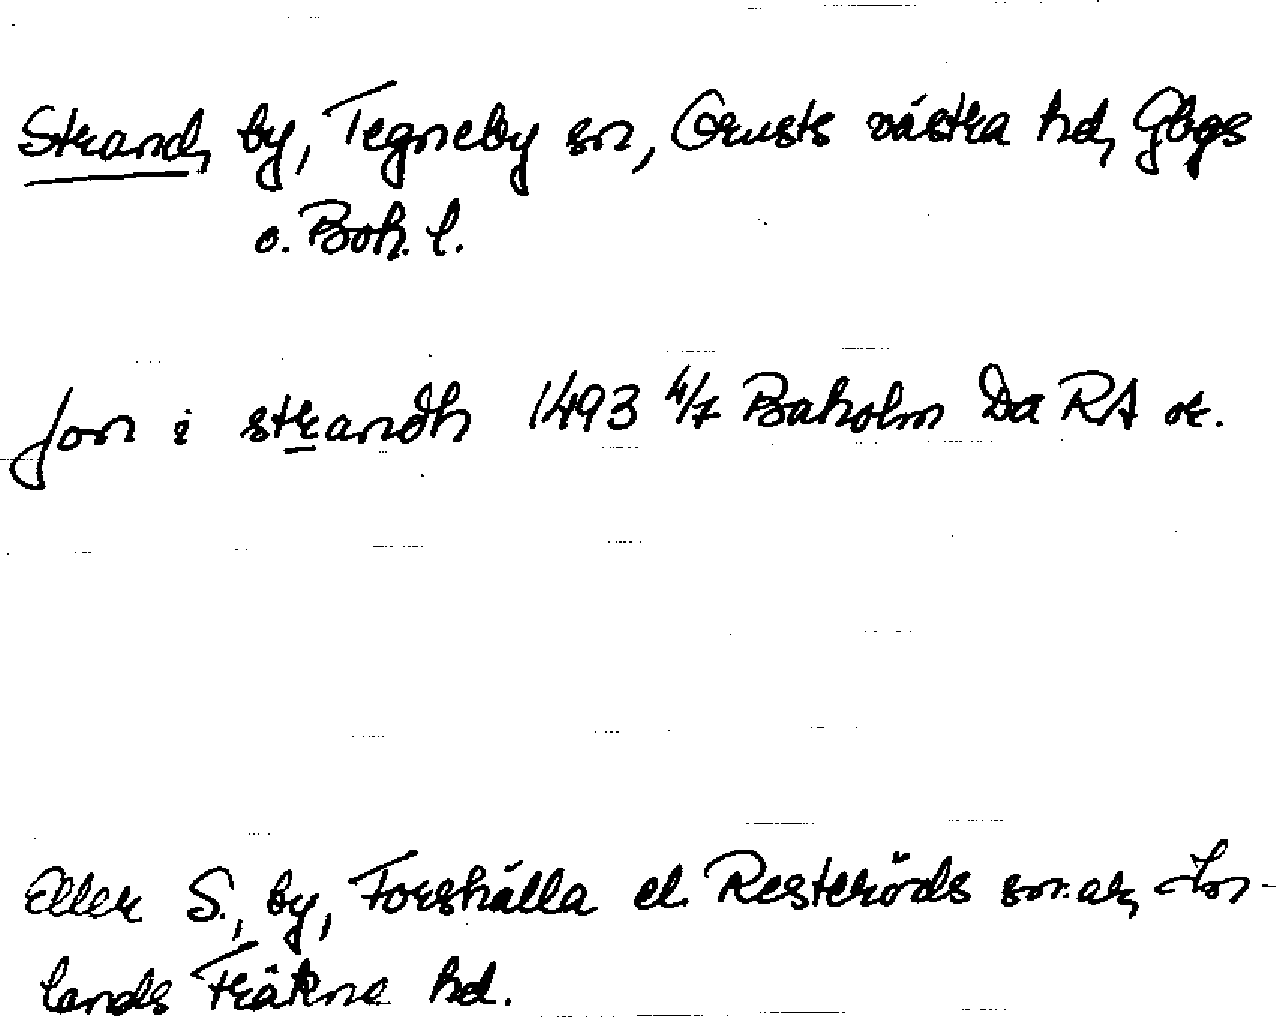 Strand, by, Tegneby sn, Orusts västra hd, Gbgs
o. Boh. l.
Jon i strandh 1493 4/7 Baholm Da RA or.
Eller S., by, Forshälla el. Resteröds sn:ar, In-
lands Fräkne hd.